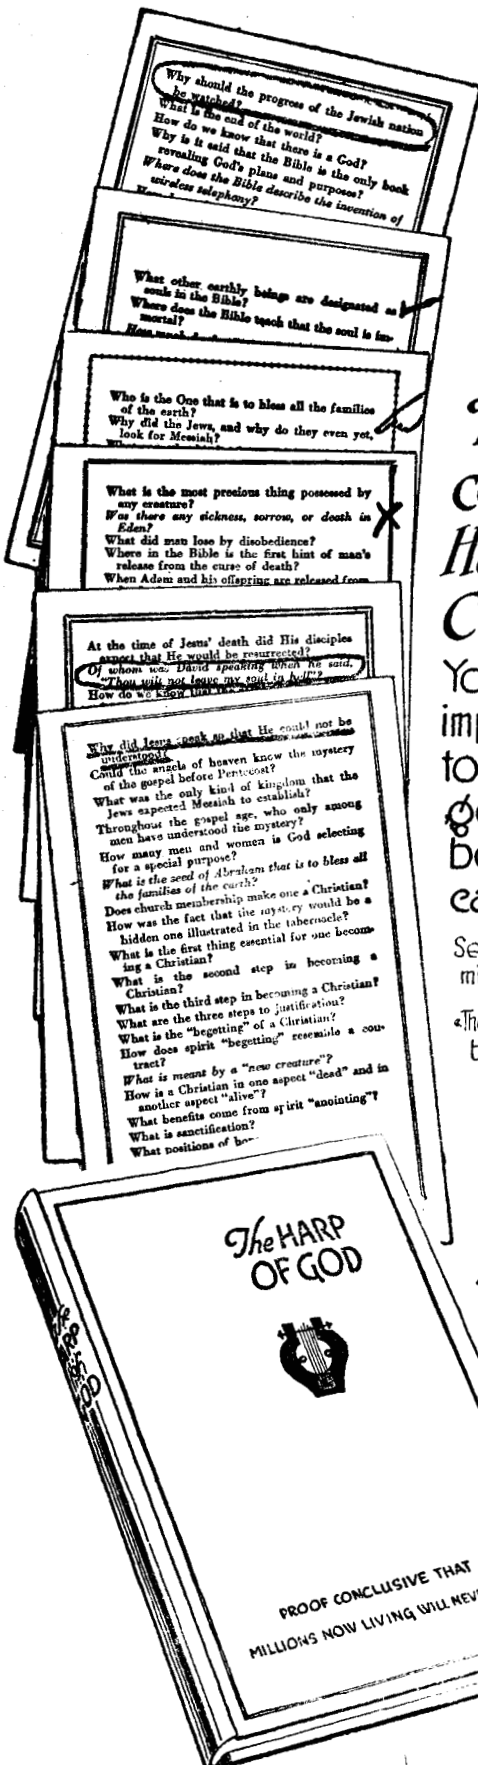 Why should the progress of the Jewish nation
be watched?
What is the end of the world?
How do we know that there is a God?
Why is it said that the Bible is the only book
revealing God's plans and purposes?
Where does the Bible describe the invention of
wireless telephony?
What other earthly beings are designated as
souls in the Bible?
Where does the Bible teach that the soul is im-
mortal?
Who is the One that is to bless all the families
of the earth?
Why did the Jews, and why do they even yet,
look for Messiah?
What is the most precious thing possessed by
any creature?
Was there any sickness, sorrow, or death in
Eden?
What did man lose by disobedience?
Where in the Bible is the first hint of man's
release from the curse of death?
When Adam and his offspring are released from
At the time of Jesus' death did His disciples
expect that He would be resurrected?
Of whom was David speaking when he said,
"Thou wilt not leave my soul in hell"?
How do we know that the
Why did Jesus speak so that He could not be
understood?
Could the angels of heaven know the mystery
of the gospel before Pentecost?
What was the only kind of kingdom that the
Jews expected Messiah to establish?
Throughout the gospel age, who only among
men have understood the mystery?
How many men and women is God selecting
for a special purpose?
What is the seed of Abraham that is to bless all
the families of the earth?
Does church membership make one a Christian?
How was the fact that the mystery would be a
hidden one illustrated in the tabernacle?
What is the first thing essential for one becom-
ing a Christian?
What is the second step in becoming a
Christian?
What is the third step in becoming a Christian?
What are the three steps to justification?
What is the "begetting" of a Christian?
How does spirit "begetting" resemble a con-
tract?
What is meant by a "new creature"?
How is a Christian in one aspect "dead" and in
another aspect "alive"?
What benefits come from spirit "anointing"?
What is sanctification?
What positions of
The HARP
OF GOD
PROOF CONCLUSIVE THAT
MILLIONS NOW LIVING WILL NEV